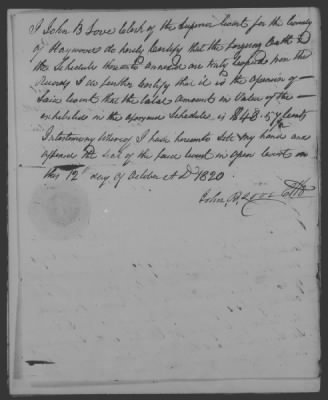 I John B Love Clerk of the Superior Court for the County
of Haywood do hereby Certify that the foregoing Oath &
the Schedule thereto annexed are truly copied from the
records I do further Certify that it is the opinion of
Said Court that the total amount in Value of the
exhibited in the aforesaid Schedule is $48.57 Cents
In testimony whereof I have hereunto Set my hand and
affixed the seal of the said Court in open Court on
this 12th day of October A D 1820
John B Love Clk